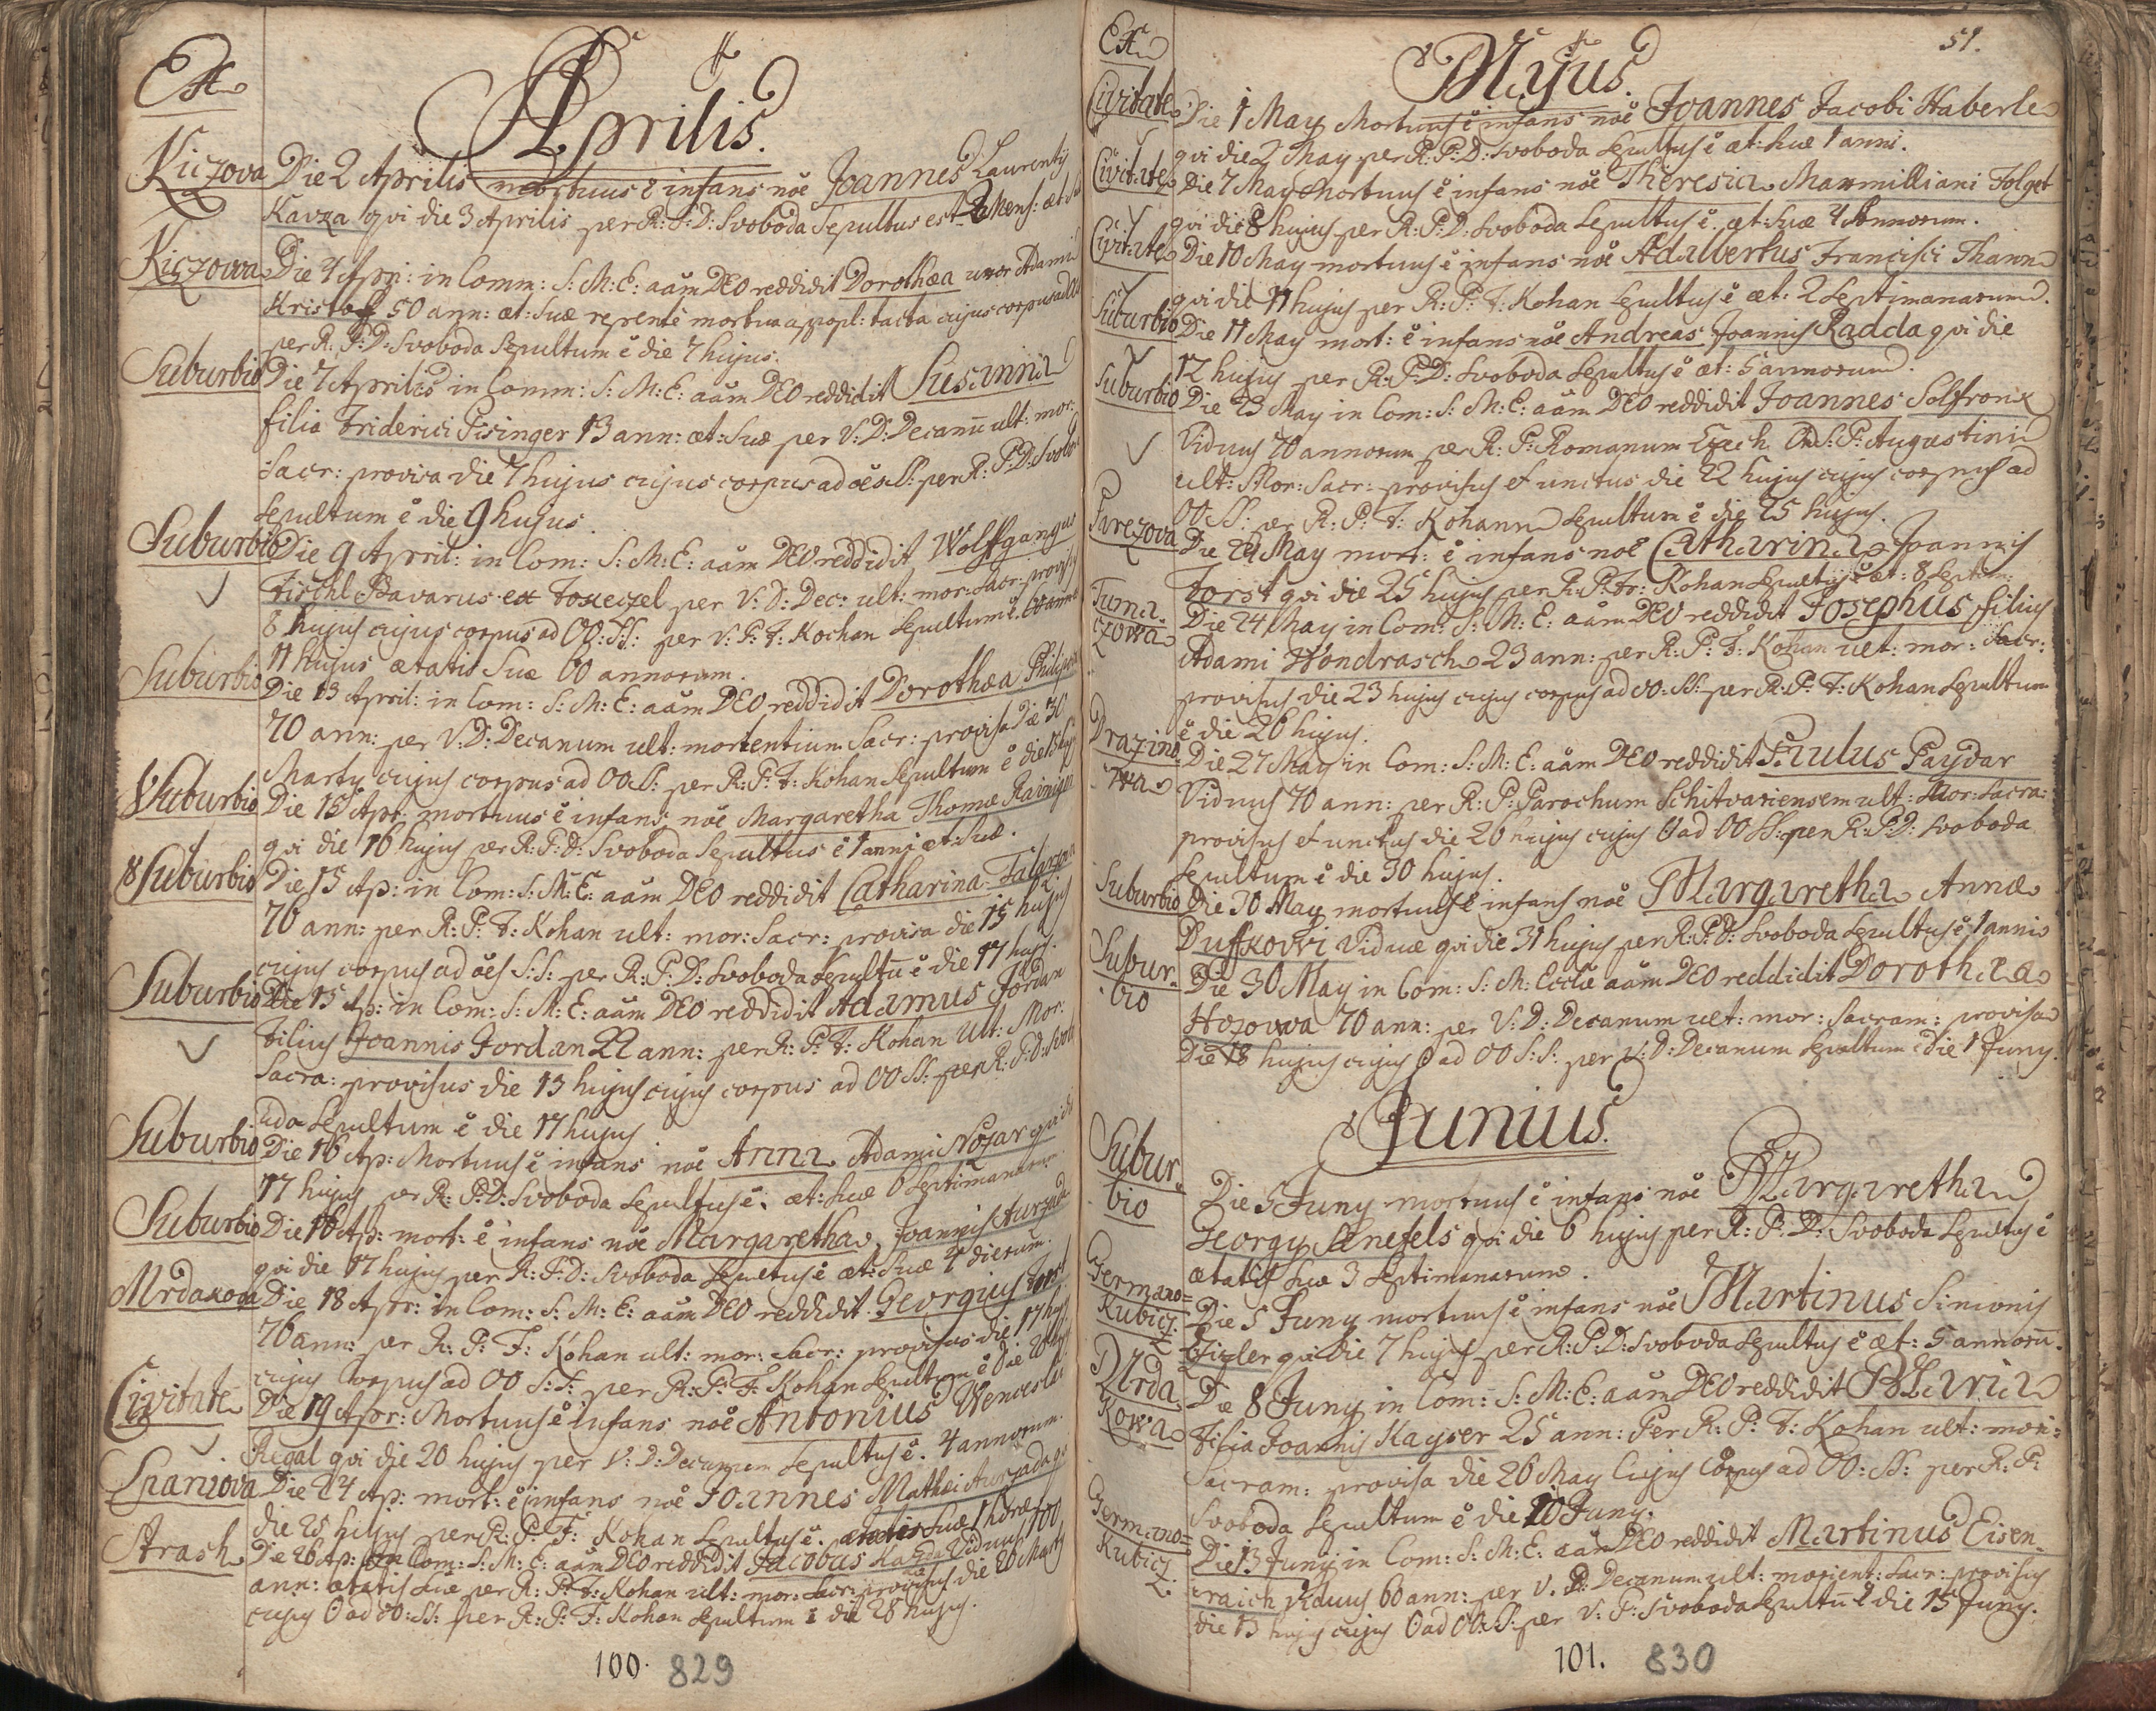 Ex
Aprilis.
Kiczova Die 2 Aprilis mortuus ē infans noē Joannes Laurentij
Kavza qvi die 3 Aprilis per R: P: D: Svoboda Sepultus est 2 Mens: æt:
Kiczowa Die 4 Apri: in Comm: S: M: E: aām DEO reddidit Dorothæa uxor Adami
Kristoff 50 ann: æt: suæ repentè mortua appopl: tacta cujus corpus ad
per R: P: D: Svoboda Sepultum ē die 7 hujus.
Suburbio Die 7 Aprilis in Comm: S: M: E: aām DEO reddidit Susanna
filia Friderici Pisinger 13 ann: æt: suæ per V: D: Decanū ult: mor:
Sacr: provisa die 7 hujus cujus corpus ad oēs SS: per R: P: D: Svobo
Sepultum ē die 9 hujus.
Suburbio Die 9 April: in Com: S: M: E: aām DEO reddidit Wolffgangus
Fischl Bavarus ex per V: D: Dec: ult: mor: Sacr: provisus
8 hujus cujus corpus ad OO: SS: per V: P: F: Kochan Sepultum ē
11 hujus ætatis Suæ 60 annorum.
Suburbio Die 13 April: in Com: S: M: E: aām DEO reddidit Dorothæa
70 ann: per V: D: Decanum ult: mortentium Sacr: provisa Die 30
Marty cujus corpus ad OO SS: per R: P: F: Kohan Sepultum ē die 15
Suburbio Die 15 Apr: mortuus ē infans noē Margaretha Thomæ
qvi die 16 hujus per R: P: D: Svoboda Sepultus ē 1 anni æt: suæ.
Suburbio Die 15 Ap: in Com: S: M: E: aām DEO reddidit Catharina
76 ann: per R: P: F: Kohan ult: mor: Sacr: provisa die 15 hujus
cujus corpus ad oēs S: S: per R: P: D: Svoboda Sepultū ē die 17 hujus.
Suburbio Die 15 Ap: in Com: S: M: E: aām DEO reddidit Adamus Jordan
Filius Joannis Jordan 22 ann: per R: P: F: Kohan Ult: Mor:
Sacra: provisus die 13 hujus cujus corpus ad OO SS: per R: P: D: Svob
uda Sepultum ē die 17 hujus
Suburbio Die 16 Ap: Mortuus ē infans noē Anna Adami Nozar qvi die
17 hujus per R: P: D: Svoboda Sepultus ē. æt: suæ 6 Septimanarum.
Suburbio Die 16 Ap: mort: ē infans noē Margaretha Joannis Aurzada
qvi die 17 hujus per R: P: D: Svoboda Sepultus ē æt: suæ 4 dierum.
Mrdakova Die 18 Apr: in Com: S: M: E: aām DEO reddidit Georgius Forst
76 ann: per R: P: F: Kohan ult: mor: Sacr: provisus die 17 hujus
cujus Corpus ad OO S: S: per R: P: F: Kohan Sepultum ē Die 20
Civitate Die 19 Apr: Mortuus ē infans noē Antonius Wenceslai
Regal qvi die 20 hujus per V: D: Decanum Sepultus ē. 4 annorum.
Spaniova Die 24 Ap: mort: ē infans noē Joannes Mathæi Aurzada qvi
die 25 hujus per R: P: F: Kohan Sepultus ē. ætatis suæ 1 horæ
Strash Die 26 Ap: in Com: S: M: E: aām DEO reddidit Jacobus Viduus 100
ann: ætatis suæ per R: P: F: Kohan ult: mor: Sacr: provisus die 20 Marty
cujus C ad OO: SS: per R: P: F: Kohan Sepultum ē die 28 hujus.
100. 829
Ex
51.
Majus.
Civitate Die 1 May Mortuus ē infans noē Joannes Jacobi Haberle
qvi die 2 May per R: P: D: Svoboda Sepultus ē æt: suæ 1 anni.
Civitate Die 7 May Mortuus ē infans noē Theresia Maxmilliani Folget
qvi die 8 hujus per R: P: D: Svoboda Sepultus ē. æt: suæ 4 Annorum.
Civitate Die 10 May mortuus ē infans noē Adalbertus Francisci Thann
qvi die 11 hujus per R: P: F: Kohan Sepultus ē æt: 2 Septimanarum.
Suburbio Die 11 May mort: ē infans noē Andreas Joannis Radda qvi die
12 hujus per R: P: D: Svoboda Sepultus ē æt: 5 annorum.
Suburbio Die 23 May in Com: S: M: E: aām DEO reddidit Joannes Solfronk
Viduus 70 annorum per R: P: Romanum Czech Ord: S: P: Augustini
ult: Mor: Sacr: provisus et unctus die 22 hujus cujus corpus ad
OO SS: per R: P: F: Kohann Sepultum ē die 25 hujus.
Parezova Die 24 May mort: ē infans noē Catharina Joannis
Forst qvi die 25 hujus per R: P: Fr: Kohan Sepultus ē æt: 8 Septim:
Tuma-
czowa Die 24 May in Com: S: M: E: aām DEO reddidit Josephus filius
Adami Wondrasch 23 ann: per R: P: F: Kohan ult: mor: Sacr:
provisus die 23 hujus cujus corpus ad OO: SS: per R: P: F: Kohan Sepultum
ē die 26 hujus.
Drazino-
wa Die 27 May in Com: S: M: E: aām DEO reddidit Paulus Paydar
Viduus 70 ann: per R: P: Parochum Schitvariensem ult: Mor: Sacra:
provisus et unctus die 26 hujus cujus C ad OO SS: per R: P: D: Svoboda
Sepultum ē die 30 hujus.
Suburbio Die 30 May mortuus ē infans noē Margaretha Annæ
Duffkowi Viduæ qvi die 31 hujus per R: P: D: Svoboda Sepultus ē 1 anni
Subur-
bio Die 30 May in Com: S: M: Ecclæ aām DEO reddidit Dorothea
Hozowa 70 ann: per V: D: Decanum ult: mor: Sacram: provisa
Die 18 hujus cujus C ad OO S: S: per V: D: Decanum Sepultum ē Die 1 Juny.
Junius.
Subur-
bio Die 5 Juny mortuus ē infans noē Margaretha
Georgy qvi die 6 hujus per R: P: D: Svoboda Sepultus ē
ætatis suæ 3 Septimanarum.
Germano=
Kubicz Die 5 Juny mortuus ē infans noē Martinus Simonis
Zigler qvi die 7 hujus per R: P: D: Svoboda Sepultus ē æt: 5 annorū.
Mrda-
kowa Die 8 Juny in Com: S: M: E: aām DEO reddidit Maria
Filia Joannis Kayser 25 ann: Per R: P: F: Kohan ult: mori:
Sacram: provisa die 26 May Cujus Corpus ad OO: SS: per R: P:
Svoboda Sepultum ē die 10 Juny.
Germano=
Kubicz Die 13 Juny in Com: S: M: E: aām DEO reddidit Martinus Eisen-
raich Viduus 60 ann: per V. D: Decanum ult: morient: Sacr: provisus
die 13 hujus cujus C ad OO: SS: per V: P: Svoboda Sepultū ē die 15 Juny.
101. 830